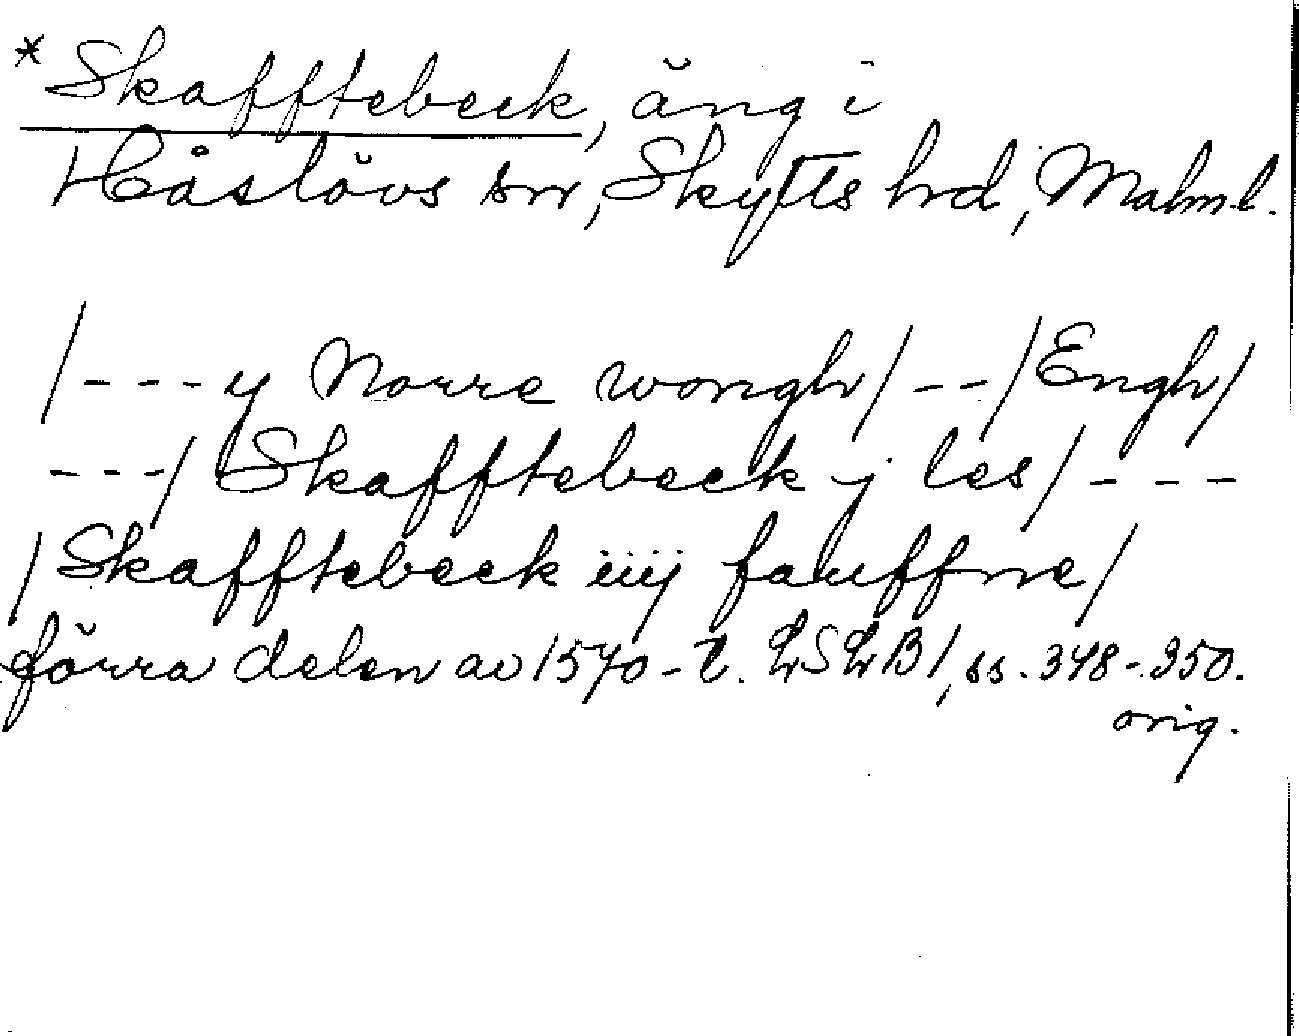 *Skafftebeck, äng i
Håslövs sn, Skytts hd, Malm.l.
/---y Norre wongh/--/Engh/
---/ Skafftebeck j les/---
/Skafftebeck iiij fauffne/
förra delen av 1570-t. LSLB1, ss. 348-350.
orig.